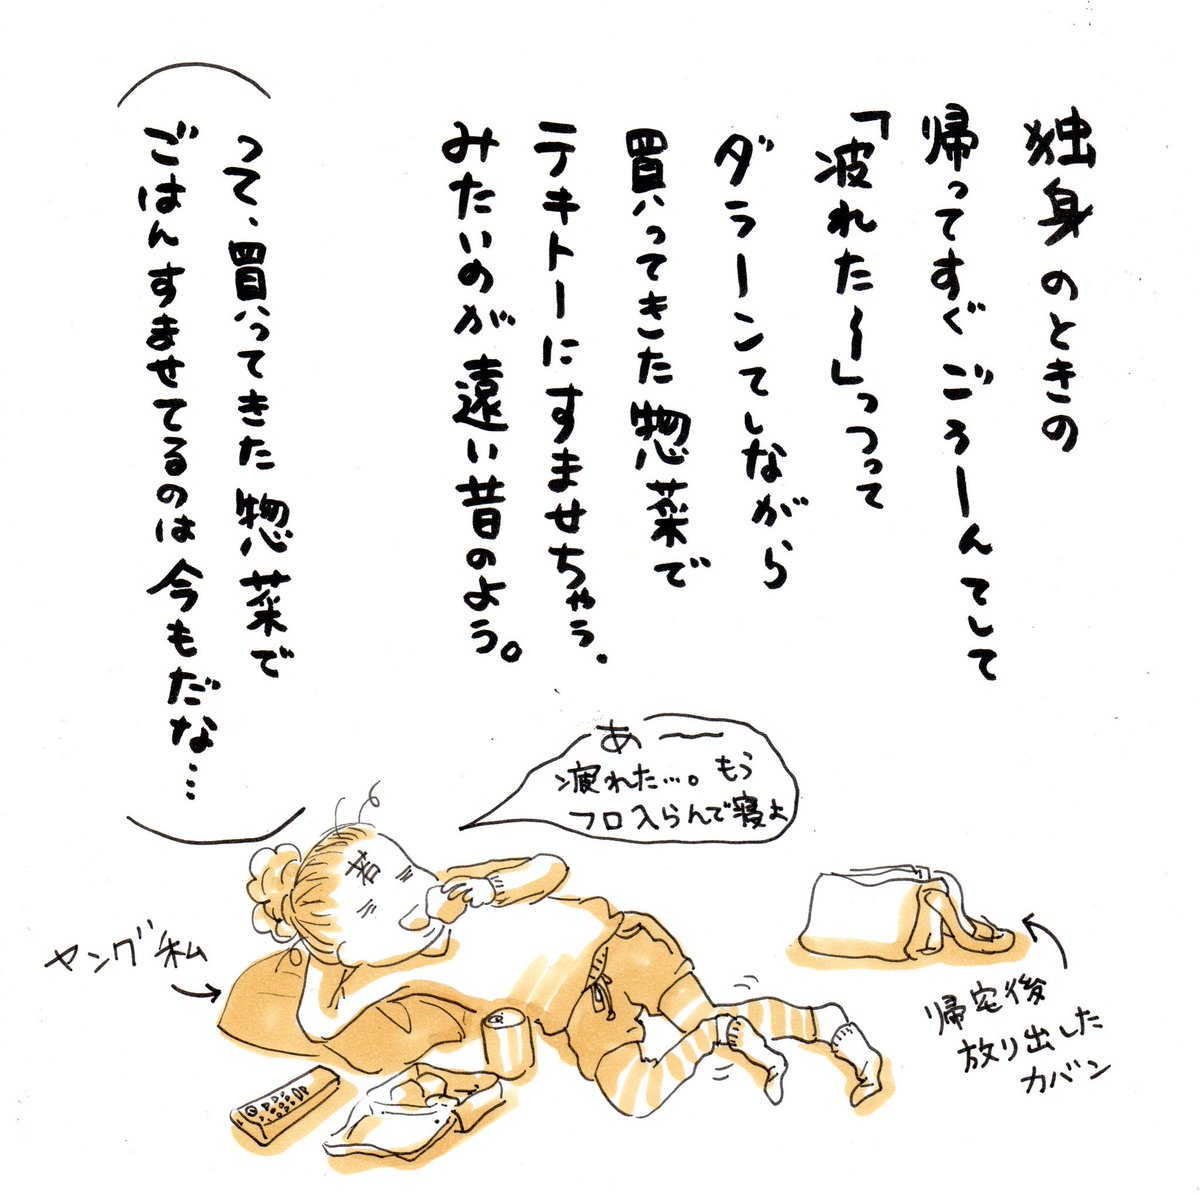 独身のときの
帰ってすぐごろーんてして
「波れた〜」っつって
ダラーンてしながら
買ってきた惣菜で
テキトーにすませちゃう、
みたいのが遠い昔のよう。
って、買ってきた惣菜で
ごはんすませてるのは今もだな…
あーー
疲れた…。もう
フロ入らんで寝よ
若
ヤング私
帰宅後
放り出した
カバン